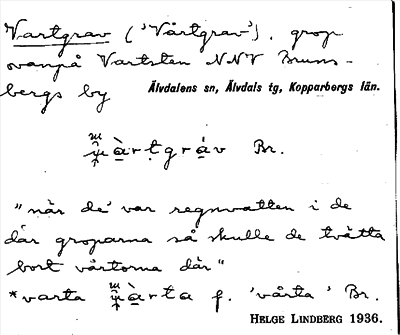 Vartgrav ('Vårtgrav'), grop
ovanpå Vartsten NNV Bruns-
bergs by
Älvdalens sn, Älvdals tg, Kopparbergs län.
Br.
"når de' var regnvatten i de
där groparna så skulle de tvätta
bort vårtorna där"
*varta f. 'vårta' Br.
HELGE LINDBERG 1936.